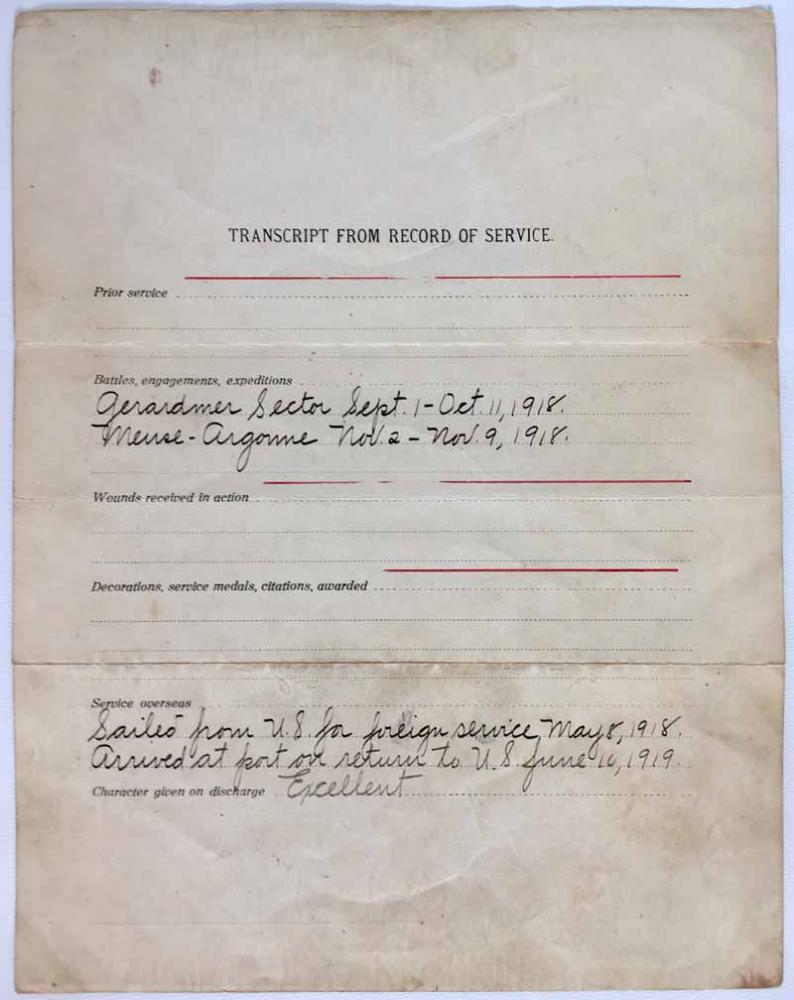 TRANSCRIPT FROM RECORD OF SERVICE.
Prior service
Battles, engagements, expeditions
Gerardmer Sector Sept. 1-Oct. 11, 1918.
Meuse-Argonne Nov. 2 - Nov. 9, 1918.
Wounds received in action
Decorations, service medals, citations, awarded
Service overseas
Sailed from U.S. for foreign service, May 8, 1918.
Arrived at port on return to U.S. June 10, 1919.
Character given on discharge Excellent